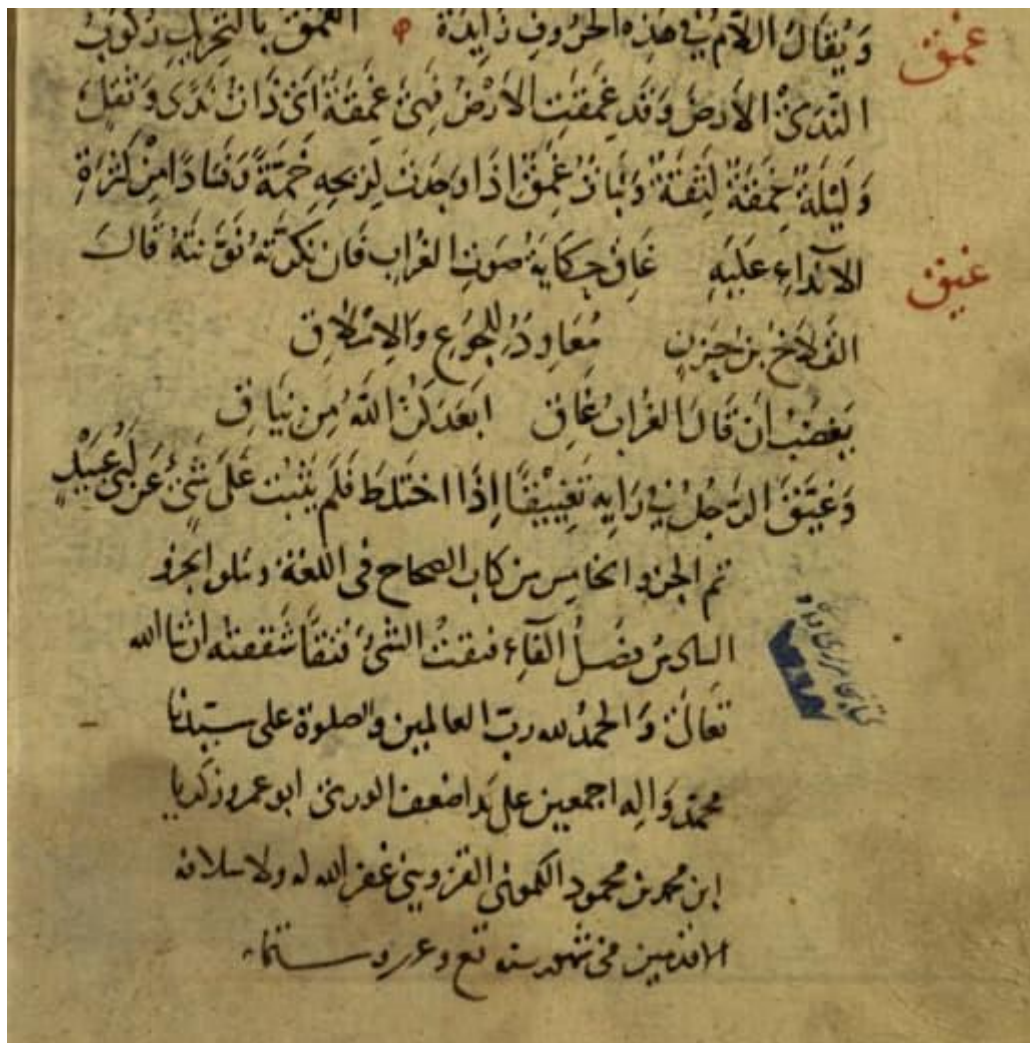 وَيُقَالُ اللَّامُ فِي هَذِهِ الحُرُوفِ زَايِدَةٌ الغَمَقُ بِالتَّحْرِيكِ رُكُوبُ
غمق
النَّدَى الأَرْضَ وَقَد غَمِقَتِ الأَرْضُ فَهِيَ غَمِقَةٌ اَىْ ذَاتُ نَدًى وَثِقَلٍ
وَلَيْلَةٌ غَمِقَةٌ لَثِقَةٌ وَنَبَاتٌ غَمِقٌ اِذَا وَجَدْتَ لِرِيحِهِ خَمَّةً وَفَسَادًا مِنْ كَثْرَةِ
الاَنْدَاءِ عَلَيْهِ غَاقِ حِكَايَةُ صَوْتِ الغُرَابِ فَاِنْ نَكَّرْتَهُ نَوَّنْتَهُ قَالَ
غيق
القُلَاخُ بْنُ حَزْنٍ مُعَاوِدٌ لِلجُوعِ وَالاِمْلَاقِ
يَغْضَبُ اَنْ قَالَ الغُرَابُ غَاقِ اَبْعَدَكُنَّ اللّٰهُ مِن نِيَاقِ
وَغَيَّقَ الرَّجُلُ فِي رَايِهِ تَغْيِيقًا اِذَا اخْتَلَطَ فَلَمْ يَثْبُتْ عَلَى شَىْءٍ عَنْ اَبِي عُبَيْدٍ
تم الجزو الخامس من كتاب الصحاح فى اللغة ويتلو الجزو
السادس فصل الفاء فتقت الشئ فتقا شققته ان شا الله
تعالى والحمد لله رب العالمين والصلوة على سيدنا
محمد واله اجمعين على يد اضعف الورى ابو عمرو زكريا
ابن محمد بن محمود الكمونى القزوينى غفر الله له ولاسلافه
الاقدمين فى شهور سنه تسع وعشرين وستمائه